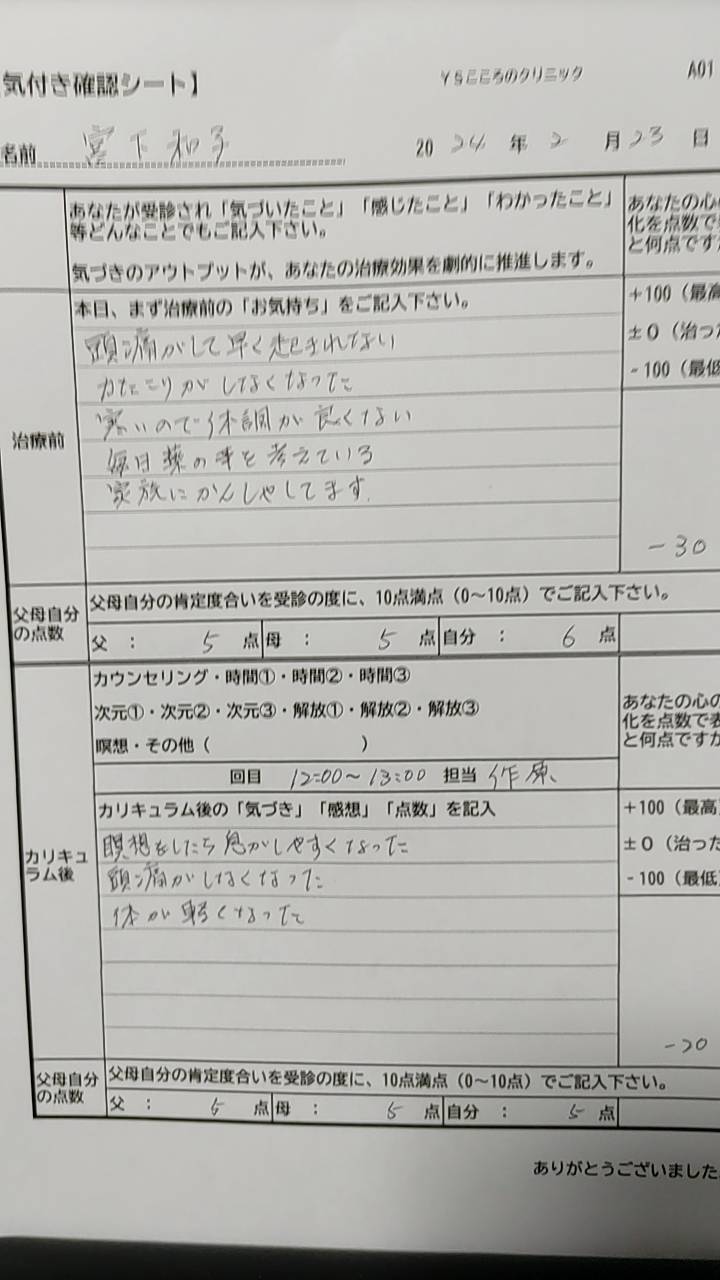 気付き確認シート】
YSこころのクリニック
A01
名前 宮下和子
2024年2月23日
あなたが受診され「気づいたこと」「感じたこと」「わかったこと」
等どんなことでもご記入下さい。
気づきのアウトプットが、あなたの治療効果を劇的に推進します。
あなたの心の
化を点数で表
と何点ですか
治療前
本日、まず治療前の「お気持ち」をご記入下さい。
頭痛がして早く起きれない
かたこりがしなくなった
寒いので体調が良くない
毎日薬の事を考えている
家族にかんしゃしてます.
+100（最高
±0（治った
-100（最低
-30
父母自分
の点数
父母自分の肯定度合いを受診の度に、10点満点（0～10点）でご記入下さい。
父 ： 5 点 母 ： 5 点 自分 ： 6 点
カリキュ
ラム後
カウンセリング・時間①・時間②・時間③
次元①・次元②・次元③・解放①・解放②・解放③
瞑想・その他（ ）
回目 12:00～13:00 担当 作原
カリキュラム後の「気づき」「感想」「点数」を記入
瞑想をしたら息がしやすくなった
頭痛がしなくなった
体が軽くなった
あなたの心の
化を点数で表
と何点ですか
+100（最高）
±0（治った
-100（最低）
-20
父母自分
の点数
父母自分の肯定度合いを受診の度に、10点満点（0～10点）でご記入下さい。
父 ： 5 点 母 ： 5 点 自分 ： 5 点
ありがとうございました